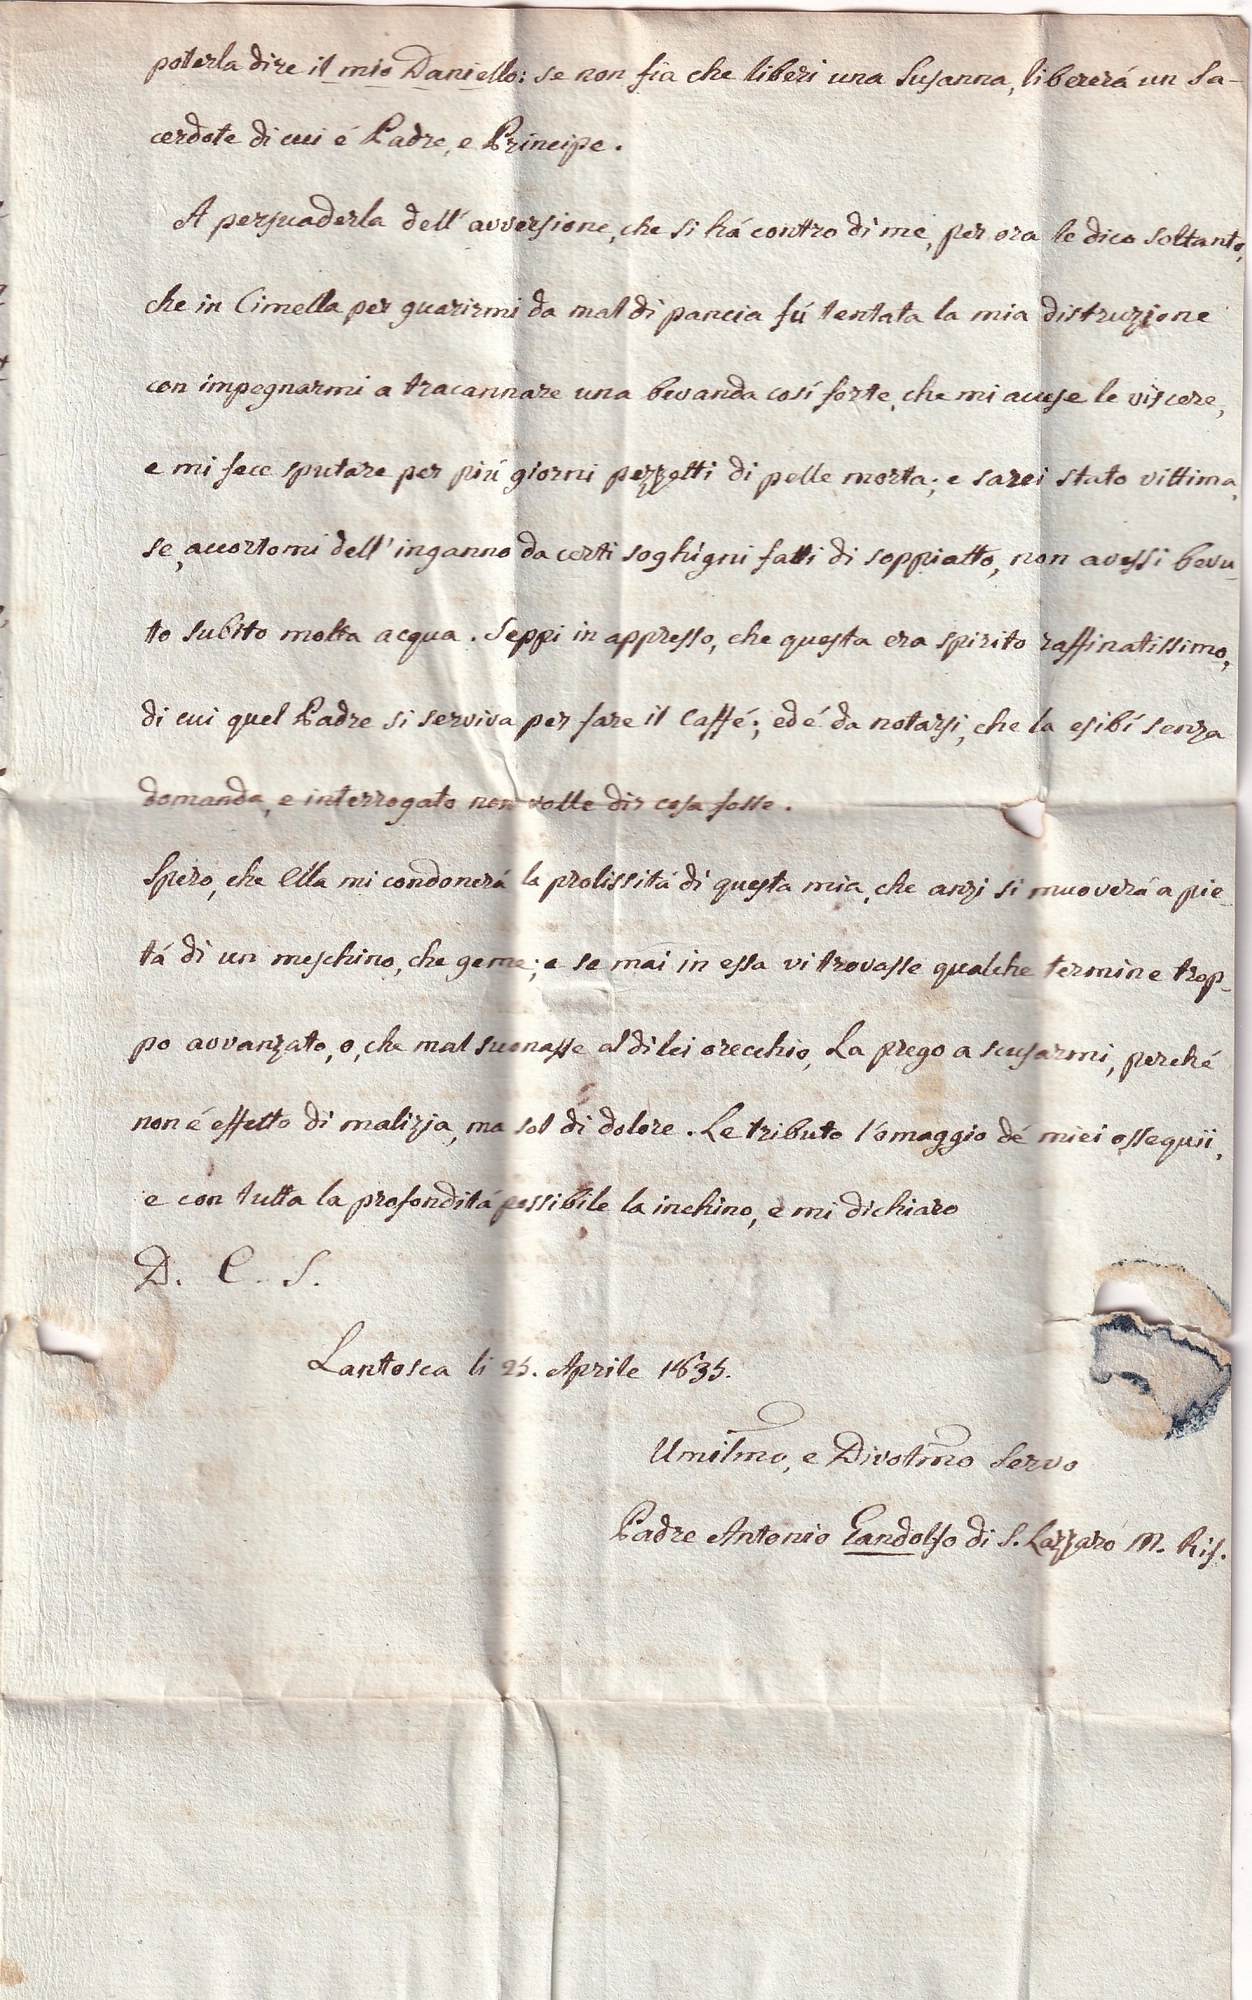 poterla dire il mio Daniello: se non fia che liberi una Susanna, libererá un Sa-
cerdote di cui é Padre, e Principe.
A persuaderla dell'avversione, che si há contro di me, per ora le dico soltanto,
che in Cimella per guarirmi da mal di pancia fú tentata la mia distruzione
con impegnarmi a tracannare una bevanda cosí forte, che mi accese le viscere,
e mi fece sputare per piú giorni pezzetti di pelle morta; e sarei stato vittima,
se, accortomi dell'inganno da certi soghigni fatti di soppiatto, non avessi bevu-
to subito molta acqua. Seppi in appresso, che questa era spirito raffinatissimo,
di cui quel Padre si serviva per fare il Caffé; ed é da notarsi, che la esibí senza
domanda, e interrogato non volle dir cosa fosse.
Spero, che Ella mi condonerá la prolissitá di questa mia, che anzi si muoverá a pie-
tá di un meschino, che geme; e se mai in essa vi trovasse qualche termine trop-
po avvanzato, o, che mal suonasse al di lei orecchio, La prego a scusarmi, perché
non é effetto di malizia, ma sol di dolore. Le tributo l'omaggio dé miei ossequii,
e con tutta la profonditá possibile la inchino, e mi dichiaro
D. E. S.
Lantosca li 25. Aprile 1835.
Umilmo, e Divotmo Servo
Padre Antonio Gandolfo di S. Lazzaro M. Rif.